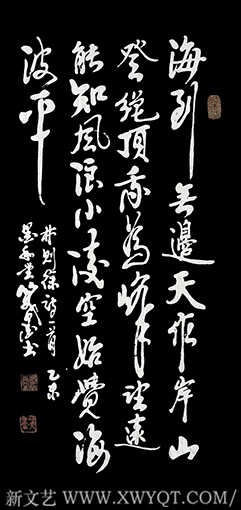 海到無邊天作岸山
登絕頂我為峰望遠
能知風浪小凌空始覺海
波平
林則徐詩一首 乙未
新文艺 WWW.XWYQT.COM/